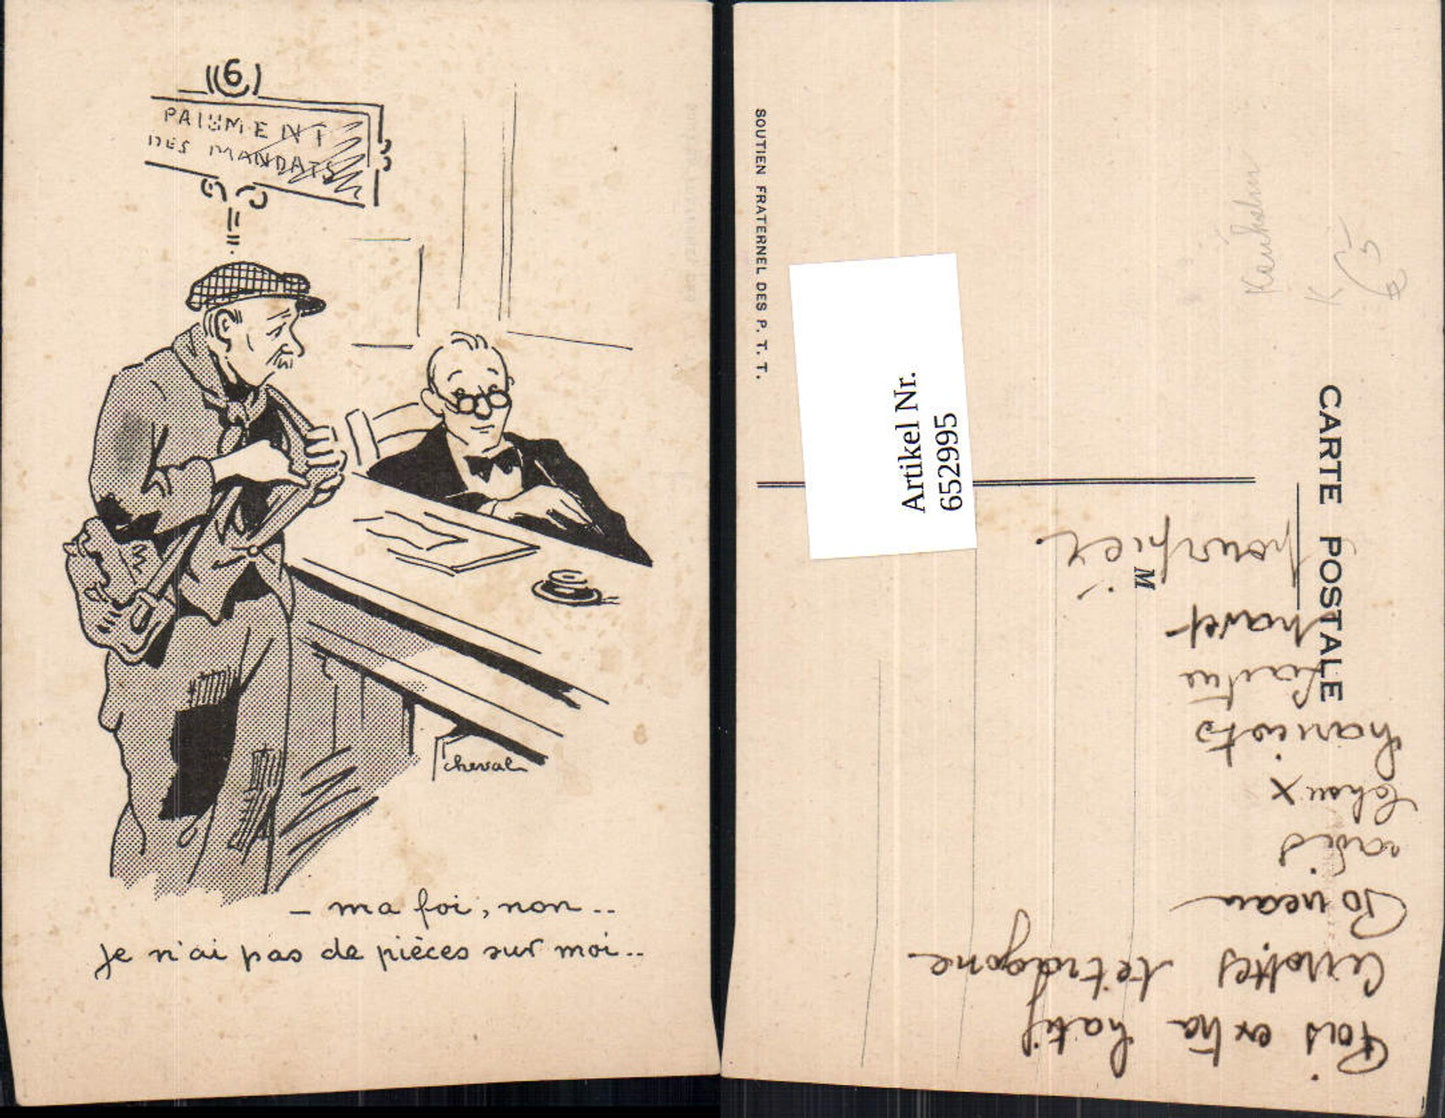 6
PAIEMENT
DES MANDATS
cheval
– ma foi, non..
je n'ai pas de pièces sur moi..
SOUTIEN FRATERNEL DES P. T. T.
CARTE POSTALE
M
Artikel Nr.
652995
Pois extra hatif
Carottes tétragone
Poireau
radis
choux
haricots
laitue
navet
pourpier